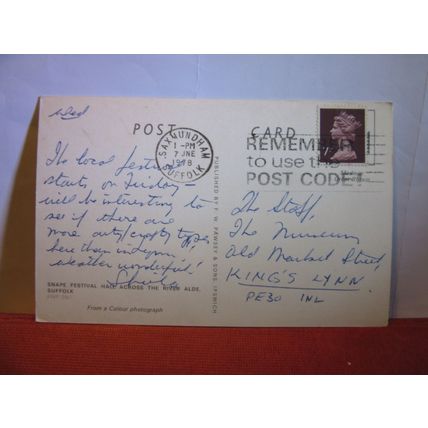 Wed
POST CARD
SAXMUNDHAM
1-PM
7 JNE
1978
SUFFOLK
REMEMBER
to use the
POST CODE
The local festival
starts on Friday -
will be interesting to
see if there are
more arty/crafty types
here than in Lynn.
Weather wonderful!
Sheila
PUBLISHED BY F. W. PAWSEY & SONS, IPSWICH
The Staff,
The Museum
Old Market Street
KING'S LYNN
PE30 1NL
SNAPE FESTIVAL HALL ACROSS THE RIVER ALDE,
SUFFOLK
From a Colour photograph